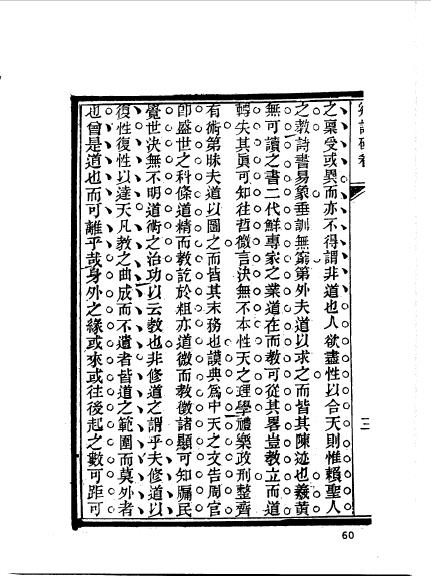 鄉試硃卷
三
之稟受或異而亦不得謂非道也人欲盡性以合天則惟賴聖人
之教詩書易象垂訓無窮第外夫道以求之而皆其陳迹也羲黃
無可讀之書二代鮮專家之業道在而教可從其畧豈教立而道
轉失其真可知往哲微言決無不本性天之理學禮樂政刑整齊
有術第昧夫道以圖之而皆其末務也謨典為中天之文告周官
即盛世之科條道精而教訖於粗亦道微而教徵諸顯可知牖民
覺世決無不明道術之治功以云教也非修道之謂乎夫修道以
復性復性以達天凡教之曲成而不遺者皆道之範圍而莫外者
也曾是道也而可離乎哉身外之緣或來或往後起之數可距可
60